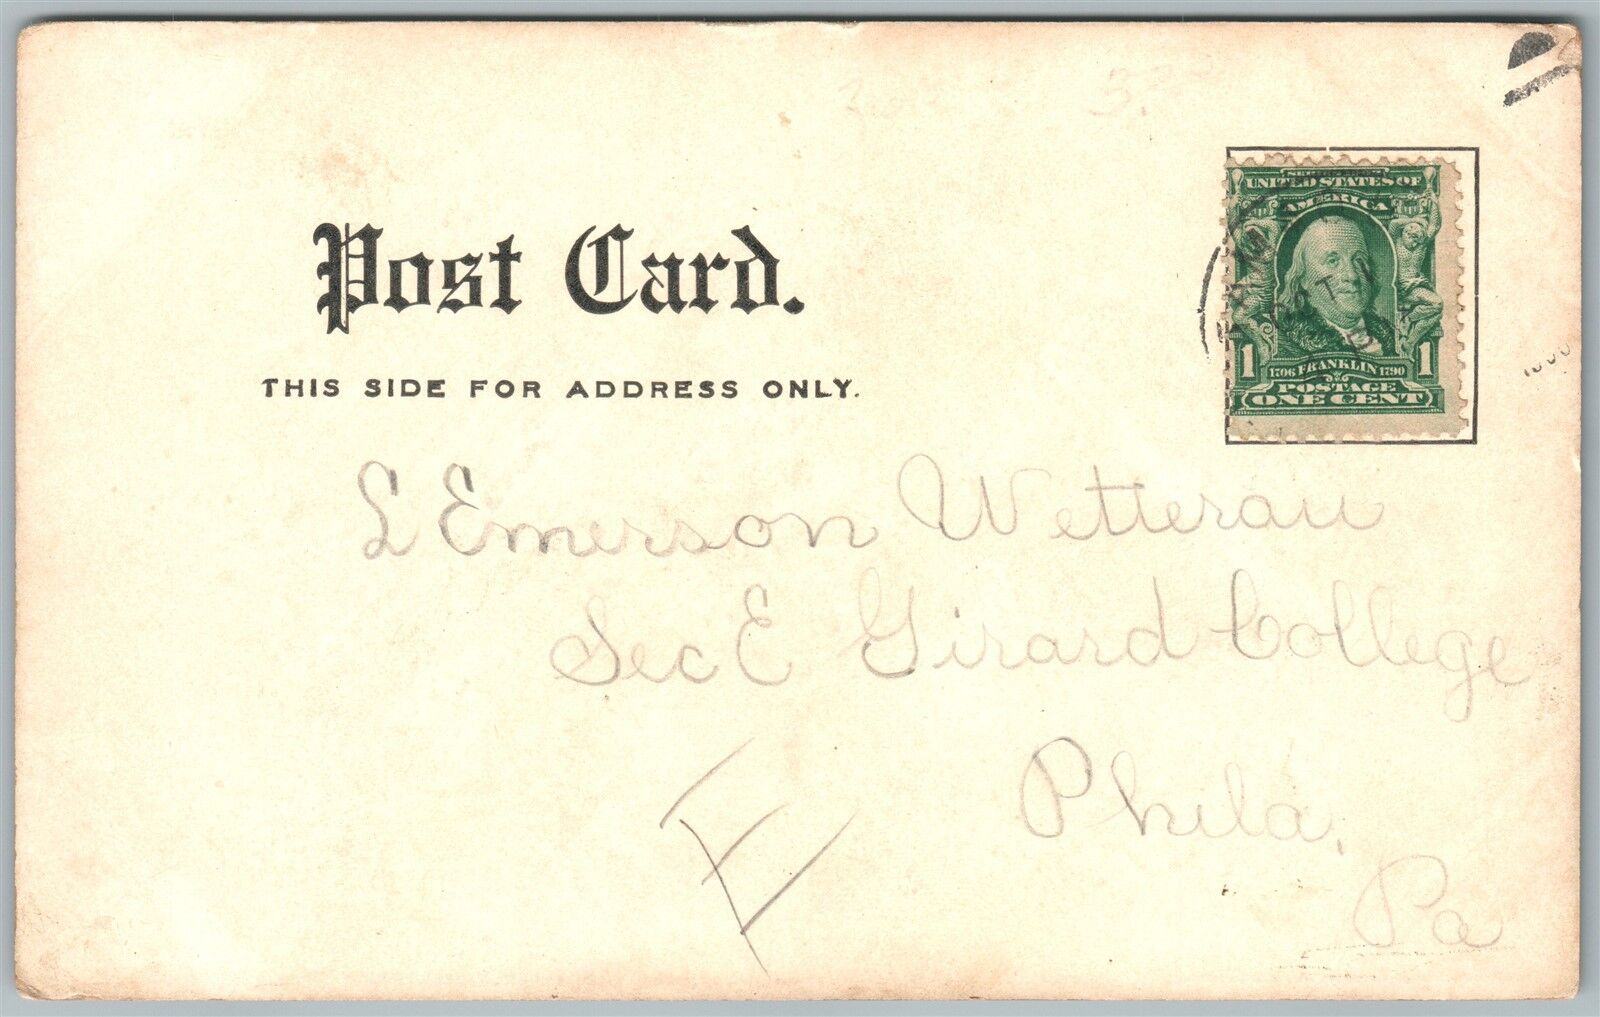 Post Card.
THIS SIDE FOR ADDRESS ONLY.
SERIES 1902
UNITED STATES OF
AMERICA
1 1706 FRANKLIN 1790 1
POSTAGE
ONE CENT
L Emerson Wetterau
Sec E Girard College
Phila,
Pa
E